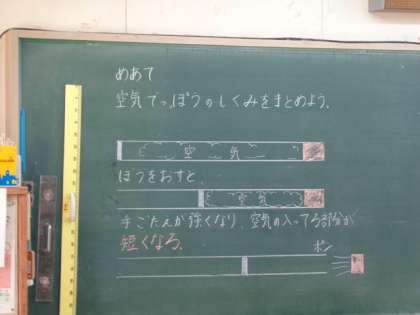 めあて
空気でっぽうのしくみをまとめよう。
空気
ぼうをおすと、
空気
手ごたえが強くなり、空気の入ってる部分が
短くなる。
ポン